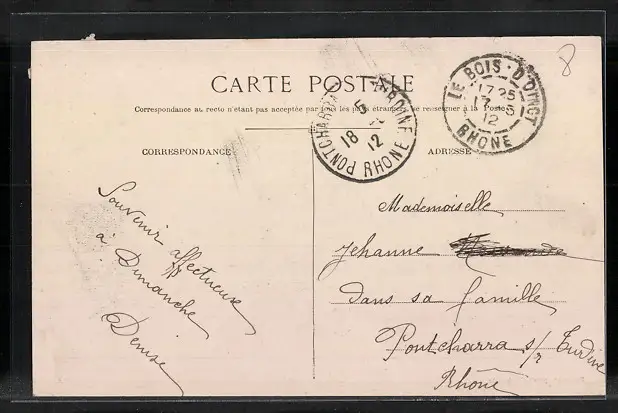 8
CARTE POSTALE
Correspondance au recto n'étant pas acceptée par tous les pays étrangers se renseigner à la Poste
LE BOIS-D'OINGT
17 25
17-5
12
RHONE
PONTCHARRA
5
18 12
RHONE
CORRESPONDANCE
ADRESSE
Souvenir affectueuse
à Dimanche
Denise
Mademoiselle
Jehanne
dans sa famille
Pontcharra s/r Turdine
Rhône